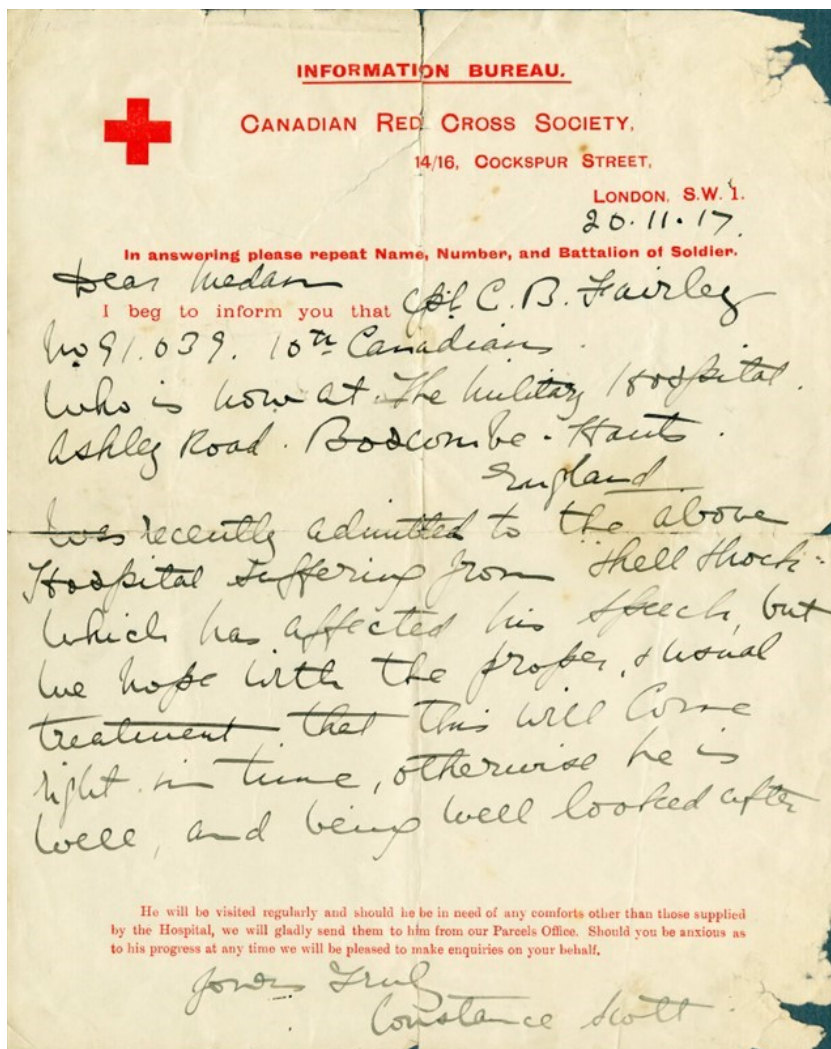 INFORMATION BUREAU.
CANADIAN RED CROSS SOCIETY,
14/16, COCKSPUR STREET,
LONDON, S.W. 1.
20.11.17.
In answering please repeat Name, Number, and Battalion of Soldier.
Dear Madam
I beg to inform you that Cpl C. B. Fairley
No 91.039. 10th Canadians.
Who is now at The Military Hospital.
Ashley Road. Boscombe. Hants.
England
was recently admitted to the above
Hospital suffering from shell shock
which has affected his speech, but
we hope with the proper, & usual
treatment that this will come
right in time, otherwise he is
well, and being well looked after
He will be visited regularly and should he be in need of any comforts other than those supplied
by the Hospital, we will gladly send them to him from our Parcels Office. Should you be anxious as
to his progress at any time we will be pleased to make enquiries on your behalf.
Yours Truly
Constance Scott